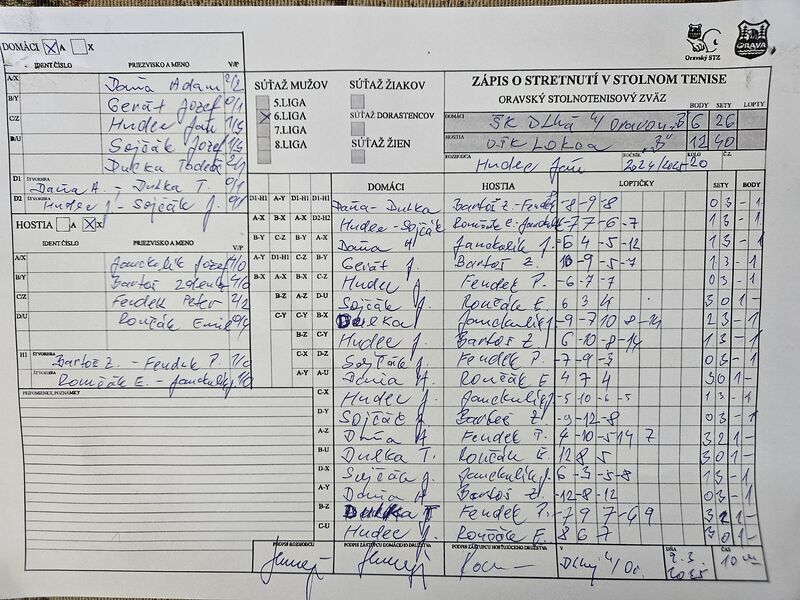 DOMÁCI X A X
IDENT.ČÍSLO PRIEZVISKO A MENO V/P
A/X Daňa Adam 2/2
B/Y Gerát Jozef 0/1
C/Z Hudec Ján 1/3
D/U Sojčák Jozef 1/3
Dulka Tadeáš 2/1
D1 ŠTVORHRA Daňa A. - Dulka T. 0/1
D2 ŠTVORHRA Hudec J - Sojčák J. 0/1
HOSTIA A X X
IDENT.ČÍSLO PRIEZVISKO A MENO V/P
A/X Janckulík Jozef 4/0
B/Y Bartoš Zdenko 4/0
C/Z Fendek Peter 2/2
D/U Rončák Emil 0/4
H1 ŠTVORHRA Bartoš Z. - Fendek P. 1/0
ŠTVORHRA Rončák E. - Janckulík J 1/0
PRIPOMIENKY, POZNÁMKY
SÚŤAŽ MUŽOV
5.LIGA
X 6.LIGA
7.LIGA
8.LIGA
SÚŤAŽ ŽIAKOV
SÚŤAŽ DORASTENCOV
SÚŤAŽ ŽIEN
Oravský STZ
ORAVA
ZÁPIS O STRETNUTÍ V STOLNOM TENISE
ORAVSKÝ STOLNOTENISOVÝ ZVÄZ
BODY SETY LOPTY
DOMÁCI ŠK Dlhá n/Oravou "B" 6 26
HOSTIA OŠK Lokca "B" 12 40
ROZHODCA Hudec Ján ROČNÍK 2024/2025 KOLO 20 Č.Z.
DOMÁCI HOSTIA LOPTIČKY SETY BODY
D1-H1 A-Y D1-H1 D1-H1 Daňa - Dulka Bartoš Z - Fendek -8 -9 -8 0 3 - 1
A-X B-X A-X D2-H2 Hudec - Sojčák Rončák E. - Janckulík -7 7 -6 -7 1 3 - 1
B-Y C-Z B-Y A-X Daňa A Janckulík J. -6 4 -5 -12 1 3 - 1
A-Y D1-H1 C-Z B-Y Gerát J. Bartoš Z. 10 -9 -5 -7 1 3 - 1
B-X A-X B-X C-Z Hudec J Fendek P. -6 -7 -7 0 3 - 1
B-Z A-Z D-U Sojčák J. Rončák E. 6 3 4 3 0 1 -
C-Y C-Y B-X Dulka Janckulík J -9 -7 10 8 -14 2 3 - 1
B-Z C-Y Hudec J. Bartoš Z. 6 -10 -8 -14 1 3 - 1
C-X D-Z Sojčák J. Fendek P. -7 -9 -3 0 3 - 1
A-Y A-U Daňa A. Rončák E 4 7 4 3 0 1 -
C-X Hudec J. Janckulík J -5 10 -6 -5 1 3 - 1
D-Y Sojčák J Bartoš Z. -9 -12 -8 0 3 - 1
A-Z Daňa A Fendek P. 4 -10 -5 14 7 3 2 1 -
B-U Dulka T. Rončák E. 12 8 5 3 0 1 -
D-X Sojčák J. Janckulík J 6 -3 -5 -8 1 3 - 1
A-Y Daňa A Bartoš Z. -12 -8 -12 0 3 - 1
B-Z Dulka T Fendek P. -7 9 7 -6 9 3 2 1 -
C-U Hudec J. Rončák E. 8 6 7 3 0 1 -
PODPIS ROZHODCU PODPIS ZÁSTUPCU DOMÁCEHO DRUŽSTVA PODPIS ZÁSTUPCU HOSŤUJÚCEHO DRUŽSTVA V Dlhej n/Or. DŇA 2.3. 2025 ČAS 10